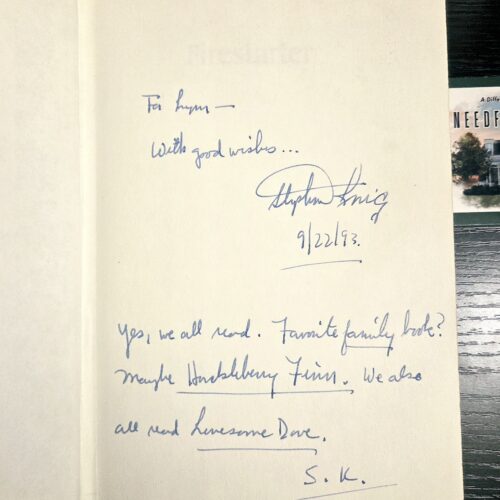 Firestarter
For Lynn —
With good wishes...
Stephen King
9/22/93.
Yes, we all read. Favorite family book?
Maybe Huckleberry Finn. We also
all read Lonesome Dove.
S. K.
A Diffe
NEEDF